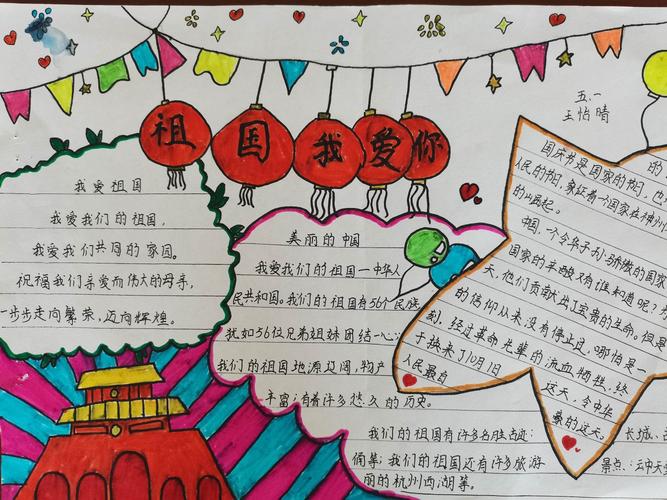 祖国我爱你
五.一
王怡晴
我爱祖国
我爱我们的祖国,
我爱我们共同的家园。
祝福我们亲爱而伟大的母亲,
一步步走向繁荣,迈向辉煌。
美丽的中国
我爱我们的祖国一中华人
民共和国。我们的祖国有56个民族
犹如56位兄弟姐妹团结一心
我们的祖国地源辽阔,物产
丰富;有着许多悠久的历史。
我们的祖国有许多名胜古迹:
俑等;我们的祖国还有许多旅游
丽的杭州西湖等。
国庆节是国家的节日,也
人民的节日,象征着一个国家在神州
的崛起。
中国,一个令华子孔骄傲的国家
国家的辛酸又有谁知道呢?
天,他们贡献出了宝贵的生命。但是
的信仰从来没有停止过,哪怕是一
刻,经过革命先辈的流血牺牲,终
于换来了10月1
这天,令中华
人民最自
豪的这天。
长城、
景点:云中天